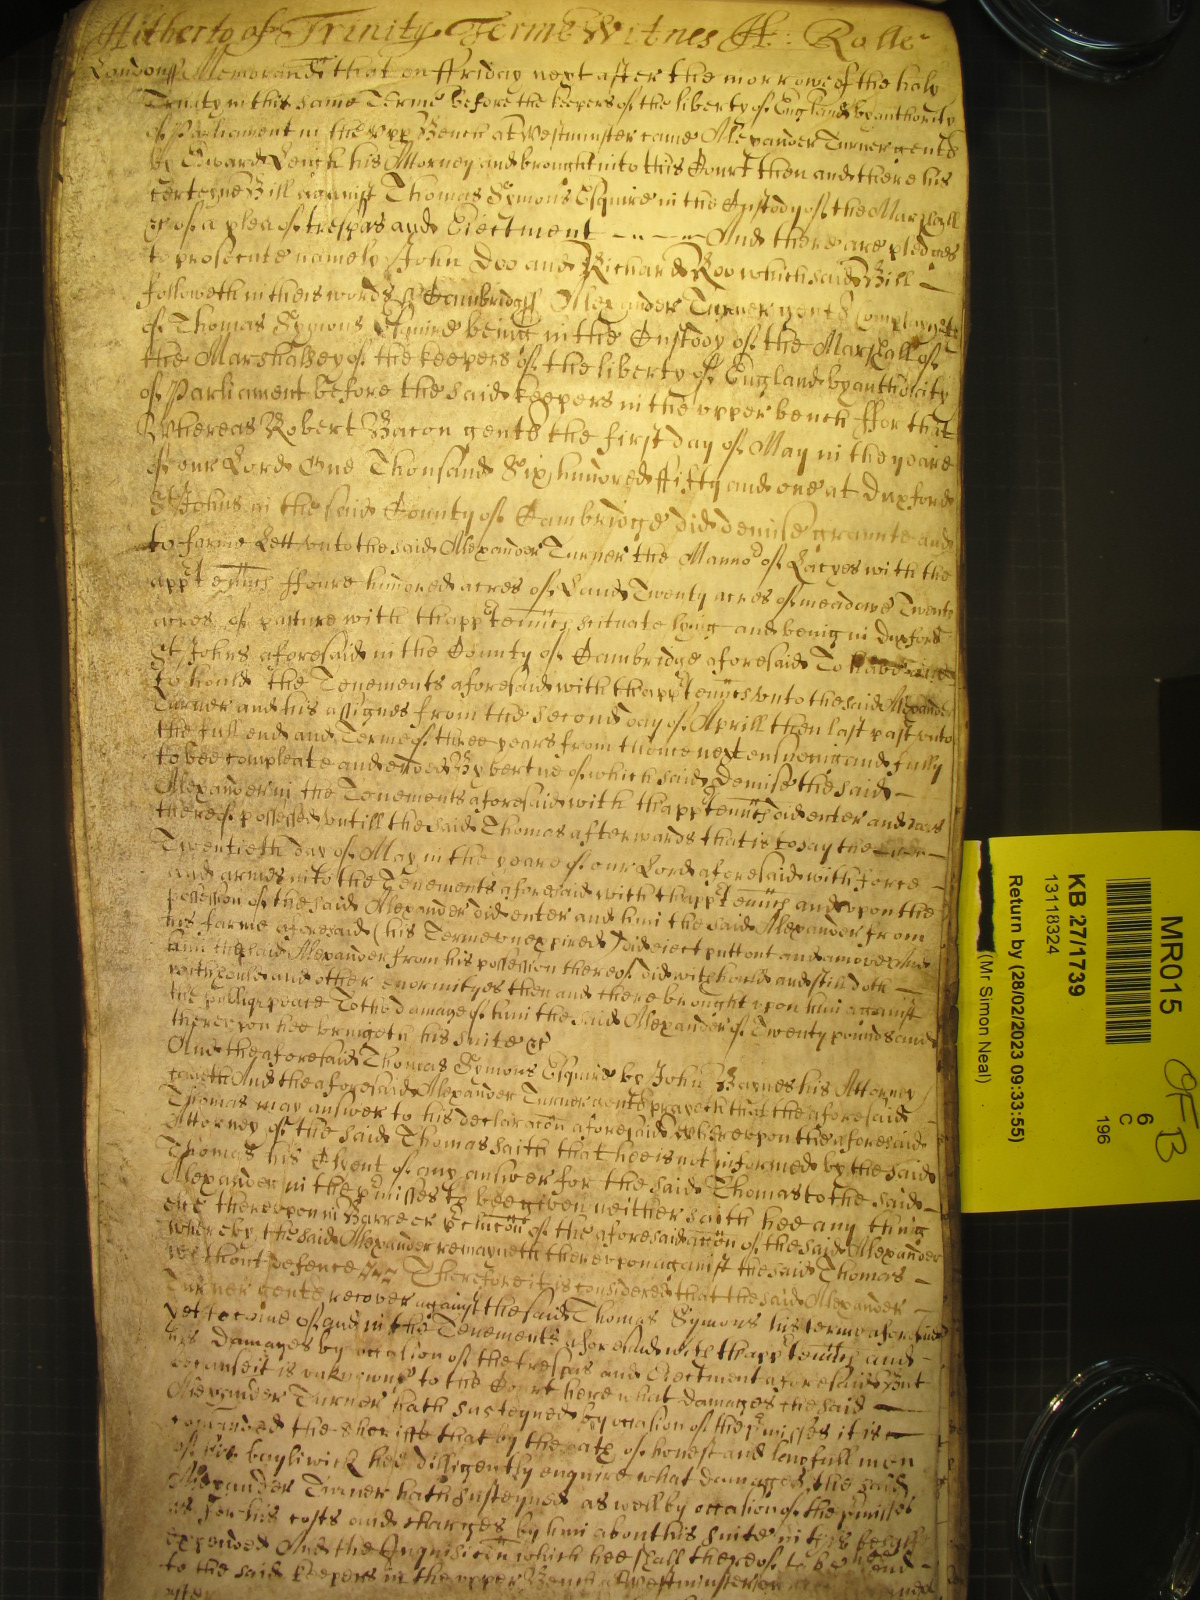 Hitherto of Trinity Terme Witnes H: Rolle
London ss Memorand that on ffriday next after the morrowe of the holy
Trinity in this same Terme before the keepers of the liberty of England by authority
of Parliament in the vpp Bench at Westminster came Alexander Turner gent
by Edward Leigh his Attorney and brought into this Court then and there his
certeyne Bill against Thomas Symons Esquire in the Custody of the Marshall
&c of a plea of trespas and Eiectment And there are pledges
to prosecute namely John Doo and Richard Roo which said Bill
followeth in theis words ss Cambridge ss Alexander Turner gent complayneth
of Thomas Symons Esquire being in the Custody of the Marshall of
the Marshalsey of the keepers of the liberty of England by authority
of Parliament before the said keepers in the vpper bench ffor that
Whereas Robert Bacon gent the first day of May in the yeare
of our Lord One Thousand Six hundred ffifty and one at Duxford
St Johns in the said County of Cambridge did demise graunte and
to farme Lett vnto the said Alexander Turner the Manno of Lacyes with the
appten̄ncs ffoure hundred acres of Land Twenty acres of meadowe Twenty
acres of pasture with thappten̄ncs scituate lying and being in Duxford
St Johns aforesaid in the County of Cambridge aforesaid To have and
to hould the Tenements aforesaid with thappten̄ncs vnto the said Alexander
Turner and his assignes from the second day of Aprill then last past vnto
the full end and Terme of three yeares from thence next ensueing and fully
to bee compleate and ended By vertue of which said demise the said
Alexander in the Tenements aforesaid with thappten̄ncs did enter and was
thereof possessed vntill the said Thomas afterwards that is to say the
Twentieth day of May in the yeare of our Lord aforesaid with force
and armes into the Tenements aforesaid with thappten̄ncs and vpon the
possession of the said Alexander did enter and him the said Alexander from
his farme aforesaid (his Terme vnexpired) did eiect putt out and amove and
him the said Alexander from his possession thereof did withhould and still doth
withhould and other enormityes then and there brought vpon him against
the publiq peace To the damage of him the said Alexander of Twenty pounds and
therevpon hee bringeth his suite &c
And the aforesaid Thomas Symons Esquire by John Barnes his Attorney
cometh And the aforesaid Alexander Turner gent prayeth that the aforesaid
Thomas may answer to his declaracon aforesaid Wherevpon the aforesaid
Attorney of the said Thomas saith that hee is not informed by the said
Thomas his Clyent of any answer for the said Thomas to the said
Alexander in the pmisses to bee given neither saith hee any thing
els therevpon in Barre or of the aforesaid accon of the said Alexander
whereby the said Alexander remayneth therevpon against the said Thomas
without defence Therefore it is considered that the said Alexander
Turner gent recover against the said Thomas Symons his terme aforesaid
yet to come of and in the Tenements aforesaid with thappten̄ncs and
his damages by occasion of the trespas and Eiectment aforesaid But
because it is vnknowne to the Court here what damages the said
Alexander Turner hath susteyned by occasion of the pmisses it is
comanded the Sheriffe that by the oath of honest and lawfull men
of his bayliwick hee dilligently enquire what damages the said
Alexander Turner hath susteyned as well by occasion of the pmisses
as for his costs and charges by him about his suite in this behalf
expended And the Inquisicon which hee shall thereof to
to the said keepers in the vpper Bench at Westminster on
MR015
KB 27/1739
13118324
Return by (28/02/2023 09:33:55)
(Mr Simon Neal)
6
C
196
OFB